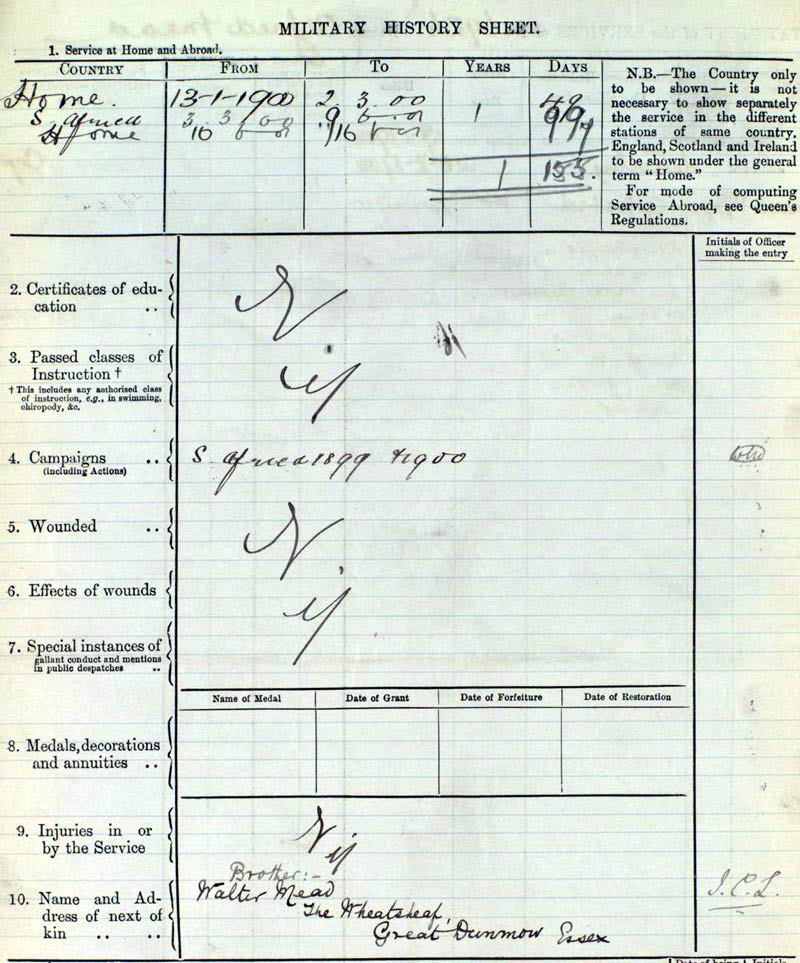 MILITARY HISTORY SHEET.
1. Service at Home and Abroad.
COUNTRY FROM TO YEARS DAYS
Home. 13-1-1900 2. 3. 00 49
S. Africa 3. 3. 00 9 6 01 1 99
Home 10 6 01 16 6 01 7
1 155.
N.B.—The Country only
to be shown—it is not
necessary to show separately
the service in the different
stations of same country.
England, Scotland and Ireland
to be shown under the general
term "Home."
For mode of computing
Service Abroad, see Queen's
Regulations.
Initials of Officer
making the entry
2. Certificates of edu-
cation ..
Nil
3. Passed classes of
Instruction †
† This includes any authorised class
of instruction, e.g., in swimming,
chiropody, &c.
4. Campaigns ..
(including Actions)
S. Africa 1899 & 1900
5. Wounded ..
Nil
6. Effects of wounds
7. Special instances of
gallant conduct and mentions
in public despatches ..
Name of Medal Date of Grant Date of Forfeiture Date of Restoration
8. Medals, decorations
and annuities ..
9. Injuries in or
by the Service
Nil
10. Name and Ad-
dress of next of
kin .. ..
Brother:-
Walter Mead
The Wheatsheaf,
Great Dunmow Essex
J.C.L.